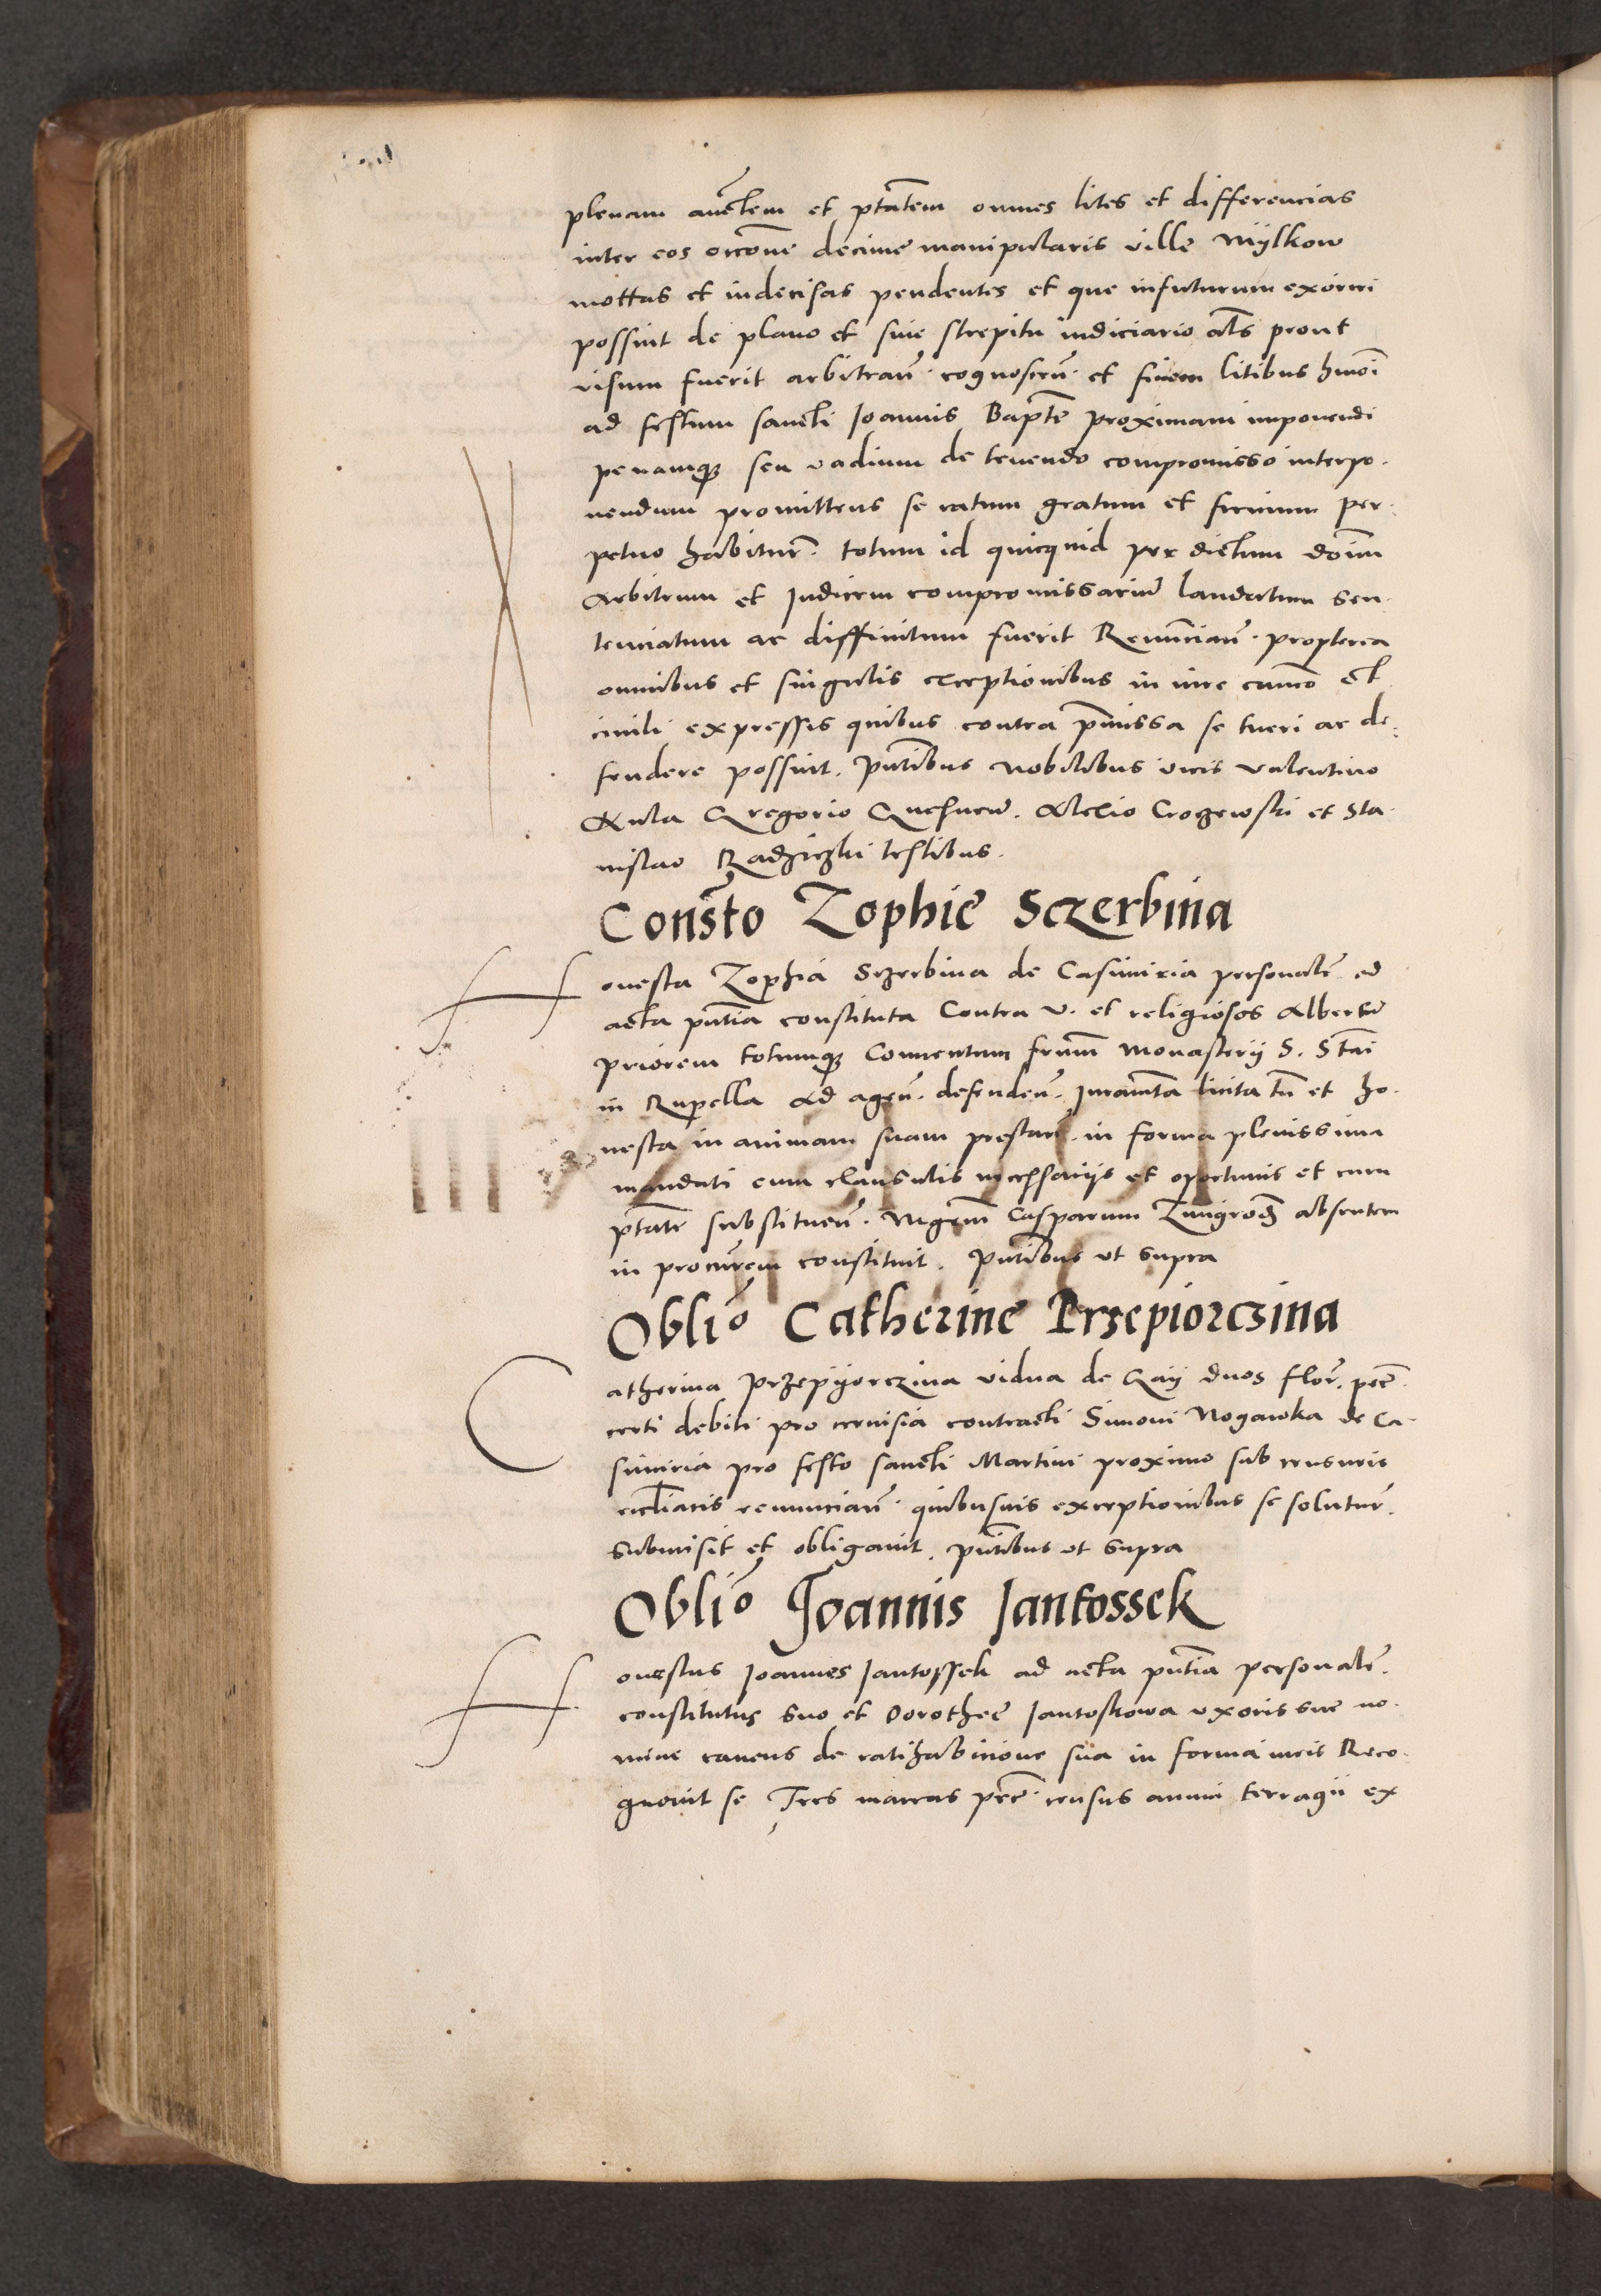 plenam auctem et ptatem omnes lites et differencias
inter eos occone decime manipularis ville Mijlkow
mottas et indecisas pendentes et que infuturum exoriri
possint de plano et sine strepitu iudiciario als prout
visum fuerit arbitran. cognoscen. et finem litibus hmoi
ad festum sancti Joannis Bapte proximam imponendi
penamq seu vadium de tenendo compromisso interpo.
nendum promittens se ratum gratum et firmum per.
petuo habitur. totum id quicquid per dictum dnm
Arbitrum et Judicem compromissarium laudatum sen.
tenciatum ac diffinitum fuerit Renuncian. propterea
omnibus et singulis exceptionibus in iure canco et
ciuili expressis quibus contra pmissa se tueri ac de.
fendere possint. pntibus nobilibus viris valentino
Gregorio Alexio Croczewski et Sta.
nislao Radziczki testibus.
Consto Zophie Sczerbina
Honesta Zophia Sczerbina de Casimiria personalr ad
acta pntia constituta Contra v. et religiosos Albertu
priorem totumq Conuentum frum Monasterij S. Stai
in Rupella Ad agen. defenden. Juramta licita tn et ho.
nesta in animam suam prestan. in forma plenissima
mandati cum clausulis necessarijs et oportunis et cum
ptate substituen. Mgrm Casparum absentem
in procurem constituit. Pntibus vt supra
Oblio Catherine Przepiorczina
Catherina Przepijorczina vidua de Gaij duos flor. pec.
certi debiti pro ceruisia contracti Simoni Nogawka de Ca.
simiria pro festo sancti Martini proximo sub censuris
ecclliacis renuncian. quibusuis exceptionibus se solutur.
submisit et obligauit. pntibus vt supra
Oblio Joannis Jantossek
Honestus Joannes Jantossek ad acta pntia personalr.
constitutus suo et Dorothee Jantoskowa vxoris sue no.
mine cauens de ratihabicione sua in forma iuris Reco.
gnouit se Tres marcas pec. census annui terragii ex